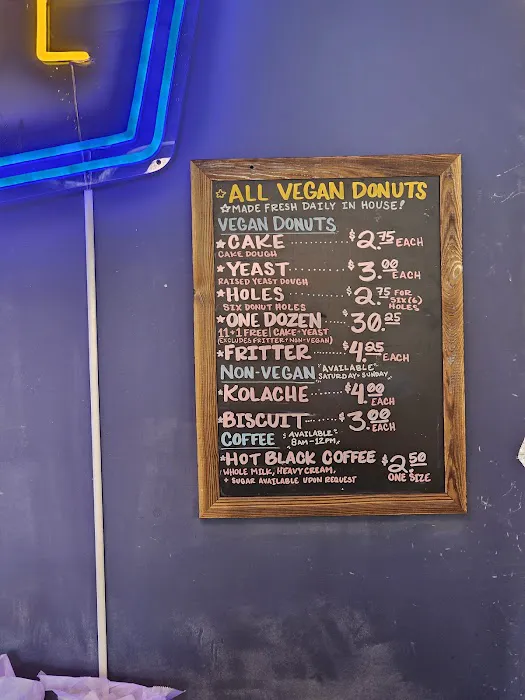 ALL VEGAN DONUTS
MADE FRESH DAILY IN HOUSE!
VEGAN DONUTS
CAKE ........... $2.75 EACH
CAKE DOUGH
YEAST ........ $3.00 EACH
RAISED YEAST DOUGH
HOLES ......... $2.75 FOR SIX(6) HOLES
SIX DONUT HOLES
ONE DOZEN ..... $30.25
11+1 FREE | CAKE + YEAST
(EXCLUDES FRITTER + NON-VEGAN)
FRITTER ...... $4.25 EACH
NON-VEGAN *AVAILABLE* SATURDAY + SUNDAY
KOLACHE ...... $4.00 EACH
BISCUIT ...... $3.00 EACH
COFFEE *AVAILABLE* 8AM-12PM
HOT BLACK COFFEE $2.50
WHOLE MILK, HEAVY CREAM, ONE SIZE
+ SUGAR AVAILABLE UPON REQUEST